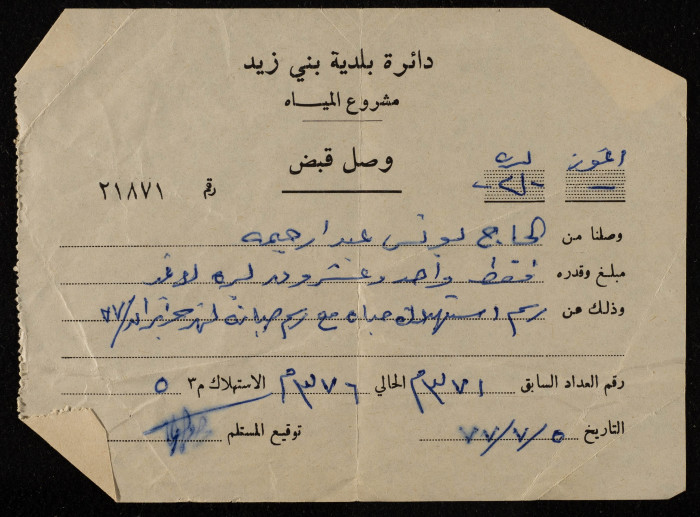 دائرة بلدية بني زيد
مشروع المياه
اغورة ليرة
وصل قبض
رقم ٢١٨٧١
- -٢١-
وصلنا من الحاج يونس عبد الرحيم
مبلغ وقدره فقط واحد وعشرون ليرة لا غير
وذلك عن رسم استهلاك مياه مع رسم صيانة لشهر حزيران/٧٧
رقم العداد السابق ٣٧١م٣ الحالي ٣٧٦م٣ الاستهلاك م٣ ٥
التاريخ ٧٧/٧/٥ توقيع المستلم